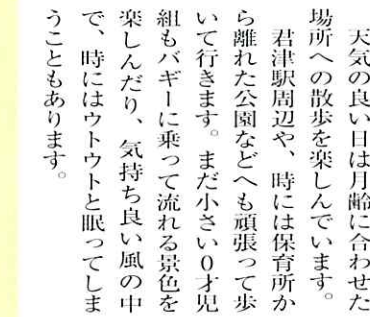 天気の良い日は月齢に合わせた
場所への散歩を楽しんでいます。
君津駅周辺や、時には保育所か
ら離れた公園などへも頑張って歩
いて行きます。まだ小さい0才児
組もバギーに乗って流れる景色を
楽しんだり、気持ち良い風の中
で、時にはウトウトと眠ってしま
うこともあります。